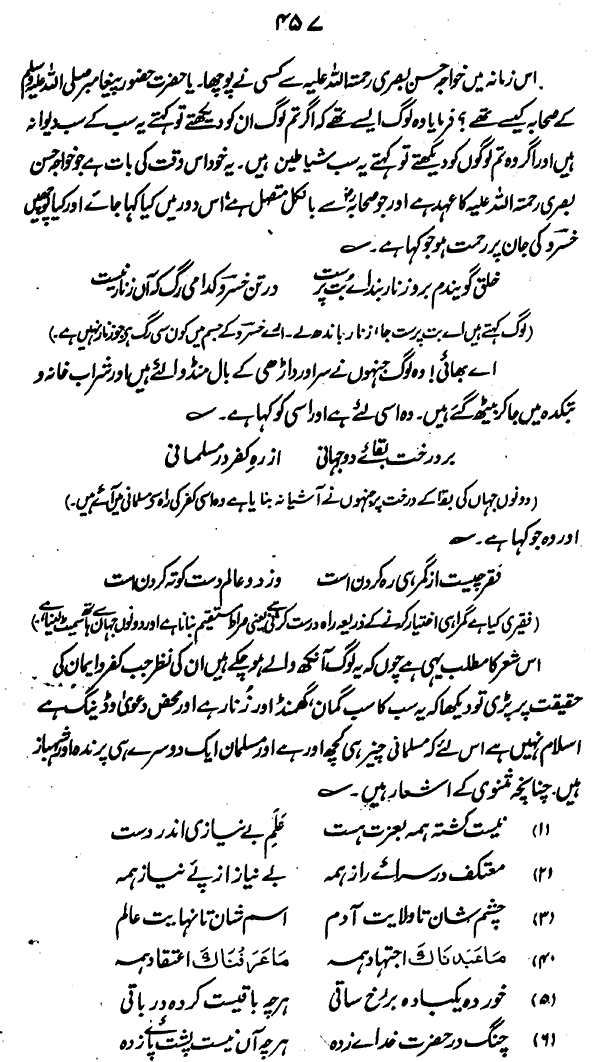 ۴۵۷
اس زمانہ میں خواجہ حسن بصری رحمتہ اللہ علیہ سے کسی نے پوچھا۔ یا حضرت حضور پیغامبر صلی اللہ علیہ وسلم
کے صحابہ کیسے تھے؟ فرمایا وہ لوگ ایسے تھے کہ اگر تم لوگ ان کو دیکھتے تو کہتے یہ سب کے سب دیوانہ
ہیں اور اگر وہ تم لوگوں کو دیکھتے تو کہتے یہ سب شیاطین ہیں۔ یہ خود اس وقت کی بات ہے جو خواجہ حسن
بصری رحمتہ اللہ علیہ کا عہد ہے اور جو صحابہؓ سے بالکل متصل ہے، اس دور میں کیا کہا جائے اور کیا پوچھیں
خسرو کی جان پر رحمت ہو جو کہا ہے۔
خلق گویندم برو زنار بند اے بت پرست در تن خسرو کدامی رگ کہ آں زنار نیست
(لوگ کہتے ہیں اے بت پرست جا، زنار باندھ لے۔ ارے خسرو کے جسم میں کون سی رگ ہے جو زنار نہیں ہے۔)
اے بھائی! وہ لوگ جنہوں نے سر اور داڑھی کے بال منڈوا لئے ہیں اور شراب خانہ و
بتکدہ میں جا کر بیٹھ گئے ہیں۔ وہ اسی لئے ہے اور اسی کو کہا ہے۔
بر درخت بقائے دو جہانی از رہ کفر در مسلمانی
(دونوں جہاں کی بقا کے درخت پر جنہوں نے آشیانہ بنایا ہے وہ اسی کفر کی راہ سے مسلمانی میں آئے ہیں۔)
اور وہ جو کہا ہے۔
فقر چیست از گمرہی رہ کردن است وز دو عالم دست کوتہ کردن است
(فقیری کیا ہے گمراہی اختیار کرنے کے ذریعہ راہ درست کرنی یعنی صراط مستقیم بنانا ہے اور دونوں جہان سے ہاتھ سمیٹ لینا ہے۔)
اس شعر کا مطلب یہی ہے چوں کہ یہ لوگ آنکھ والے ہو چکے ہیں ان کی نظر جب کفر و ایمان کی
حقیقت پر پڑی تو دیکھا کہ یہ سب کا سب گمان، گھمنڈ اور زُنار ہے اور محض دعویٰ و ڈینگ ہے
اسلام نہیں ہے اس لئے کہ مسلمانی چیز ہی کچھ اور ہے اور مسلمان ایک دوسرے ہی پرندہ اور شہباز
ہیں۔ چنانچہ مثنوی کے اشعار ہیں۔
(۱) نیست گشتہ ہمہ بعزت ہست عَلَمِ بے نیازی اندر دست
(۲) معتکف در سرائے راز ہمہ بے نیاز از پئے نیاز ہمہ
(۳) چشم شان تا ولایت آدم اسم شان تا نہایت عالم
(۴) مَا عَبَدنَاکَ اجتہاد ہمہ مَا عَرَفْنَاکَ اعتقاد ہمہ
(۵) خوردہ یکبادہ بر رخ ساقی ہر چہ باقیست کردہ در باقی
(۶) چنگ در حضرت خدائے زدہ ہر چہ آں نیست پشت پائے زدہ